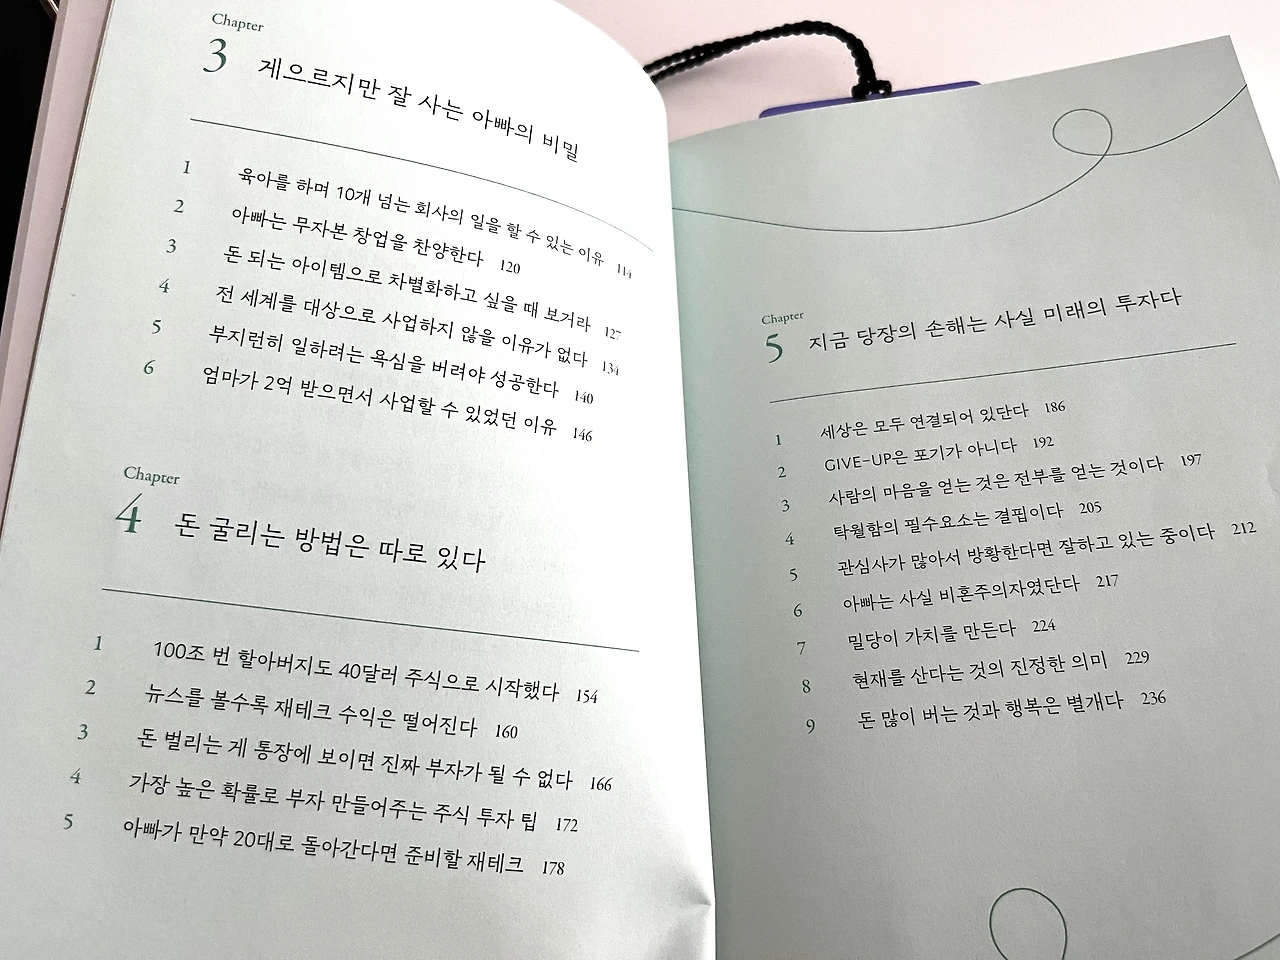 Chapter
3 게으르지만 잘 사는 아빠의 비밀
1 육아를 하며 10개 넘는 회사의 일을 할 수 있는 이유 114
2 아빠는 무자본 창업을 찬양한다 120
3 돈 되는 아이템으로 차별화하고 싶을 때 보거라 127
4 전 세계를 대상으로 사업하지 않을 이유가 없다 134
5 부지런히 일하려는 욕심을 버려야 성공한다 140
6 엄마가 2억 받으면서 사업할 수 있었던 이유 146
Chapter
4 돈 굴리는 방법은 따로 있다
1 100조 번 할아버지도 40달러 주식으로 시작했다 154
2 뉴스를 볼수록 재테크 수익은 떨어진다 160
3 돈 벌리는 게 통장에 보이면 진짜 부자가 될 수 없다 166
4 가장 높은 확률로 부자 만들어주는 주식 투자 팁 172
5 아빠가 만약 20대로 돌아간다면 준비할 재테크 178
Chapter
5 지금 당장의 손해는 사실 미래의 투자다
1 세상은 모두 연결되어 있단다 186
2 GIVE-UP은 포기가 아니다 192
3 사람의 마음을 얻는 것은 전부를 얻는 것이다 197
4 탁월함의 필수요소는 결핍이다 205
5 관심사가 많아서 방황한다면 잘하고 있는 중이다 212
6 아빠는 사실 비혼주의자였단다 217
7 밀당이 가치를 만든다 224
8 현재를 산다는 것의 진정한 의미 229
9 돈 많이 버는 것과 행복은 별개다 236